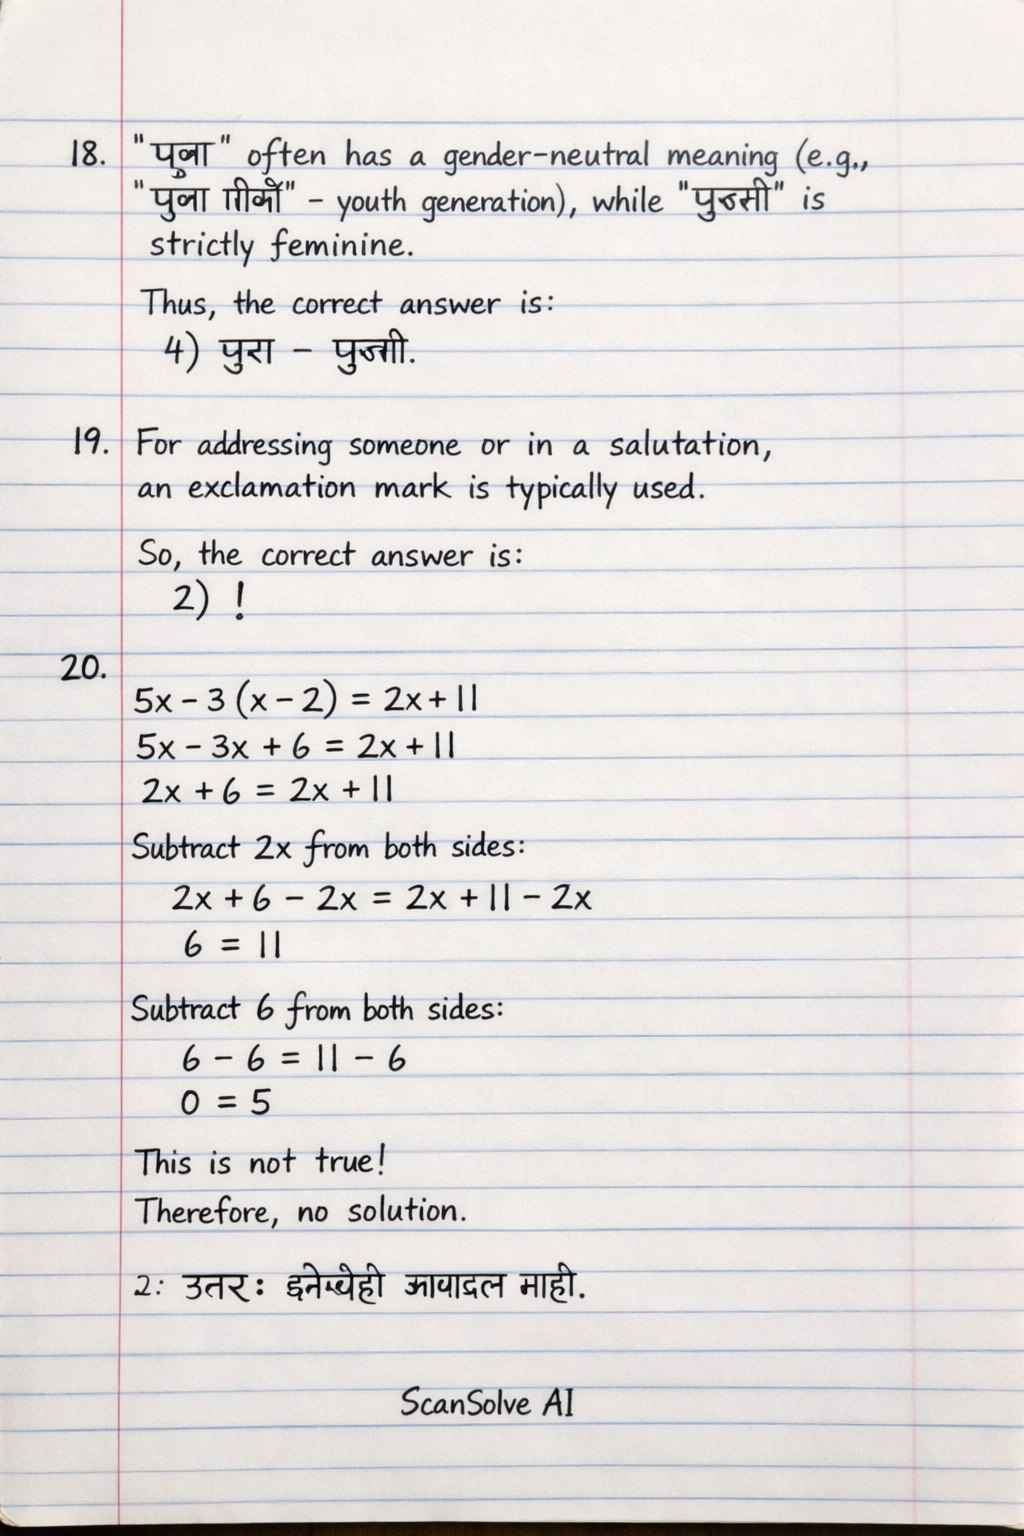 18. "पुना" often has a gender-neutral meaning (e.g.,
" - youth generation), while " is
strictly feminine.
Thus, the correct answer is:
4) पुरा -
19. For addressing someone or in a salutation,
an exclamation mark is typically used.
So, the correct answer is:
2) !
20.
5x - 3 (x - 2) = 2x + 11
5x - 3x + 6 = 2x + 11
2x + 6 = 2x + 11
Subtract 2x from both sides:
2x + 6 - 2x = 2x + 11 - 2x
6 = 11
Subtract 6 from both sides:
6 - 6 = 11 - 6
0 = 5
This is not true!
Therefore, no solution.
2: उतर: माही.
ScanSolve AI